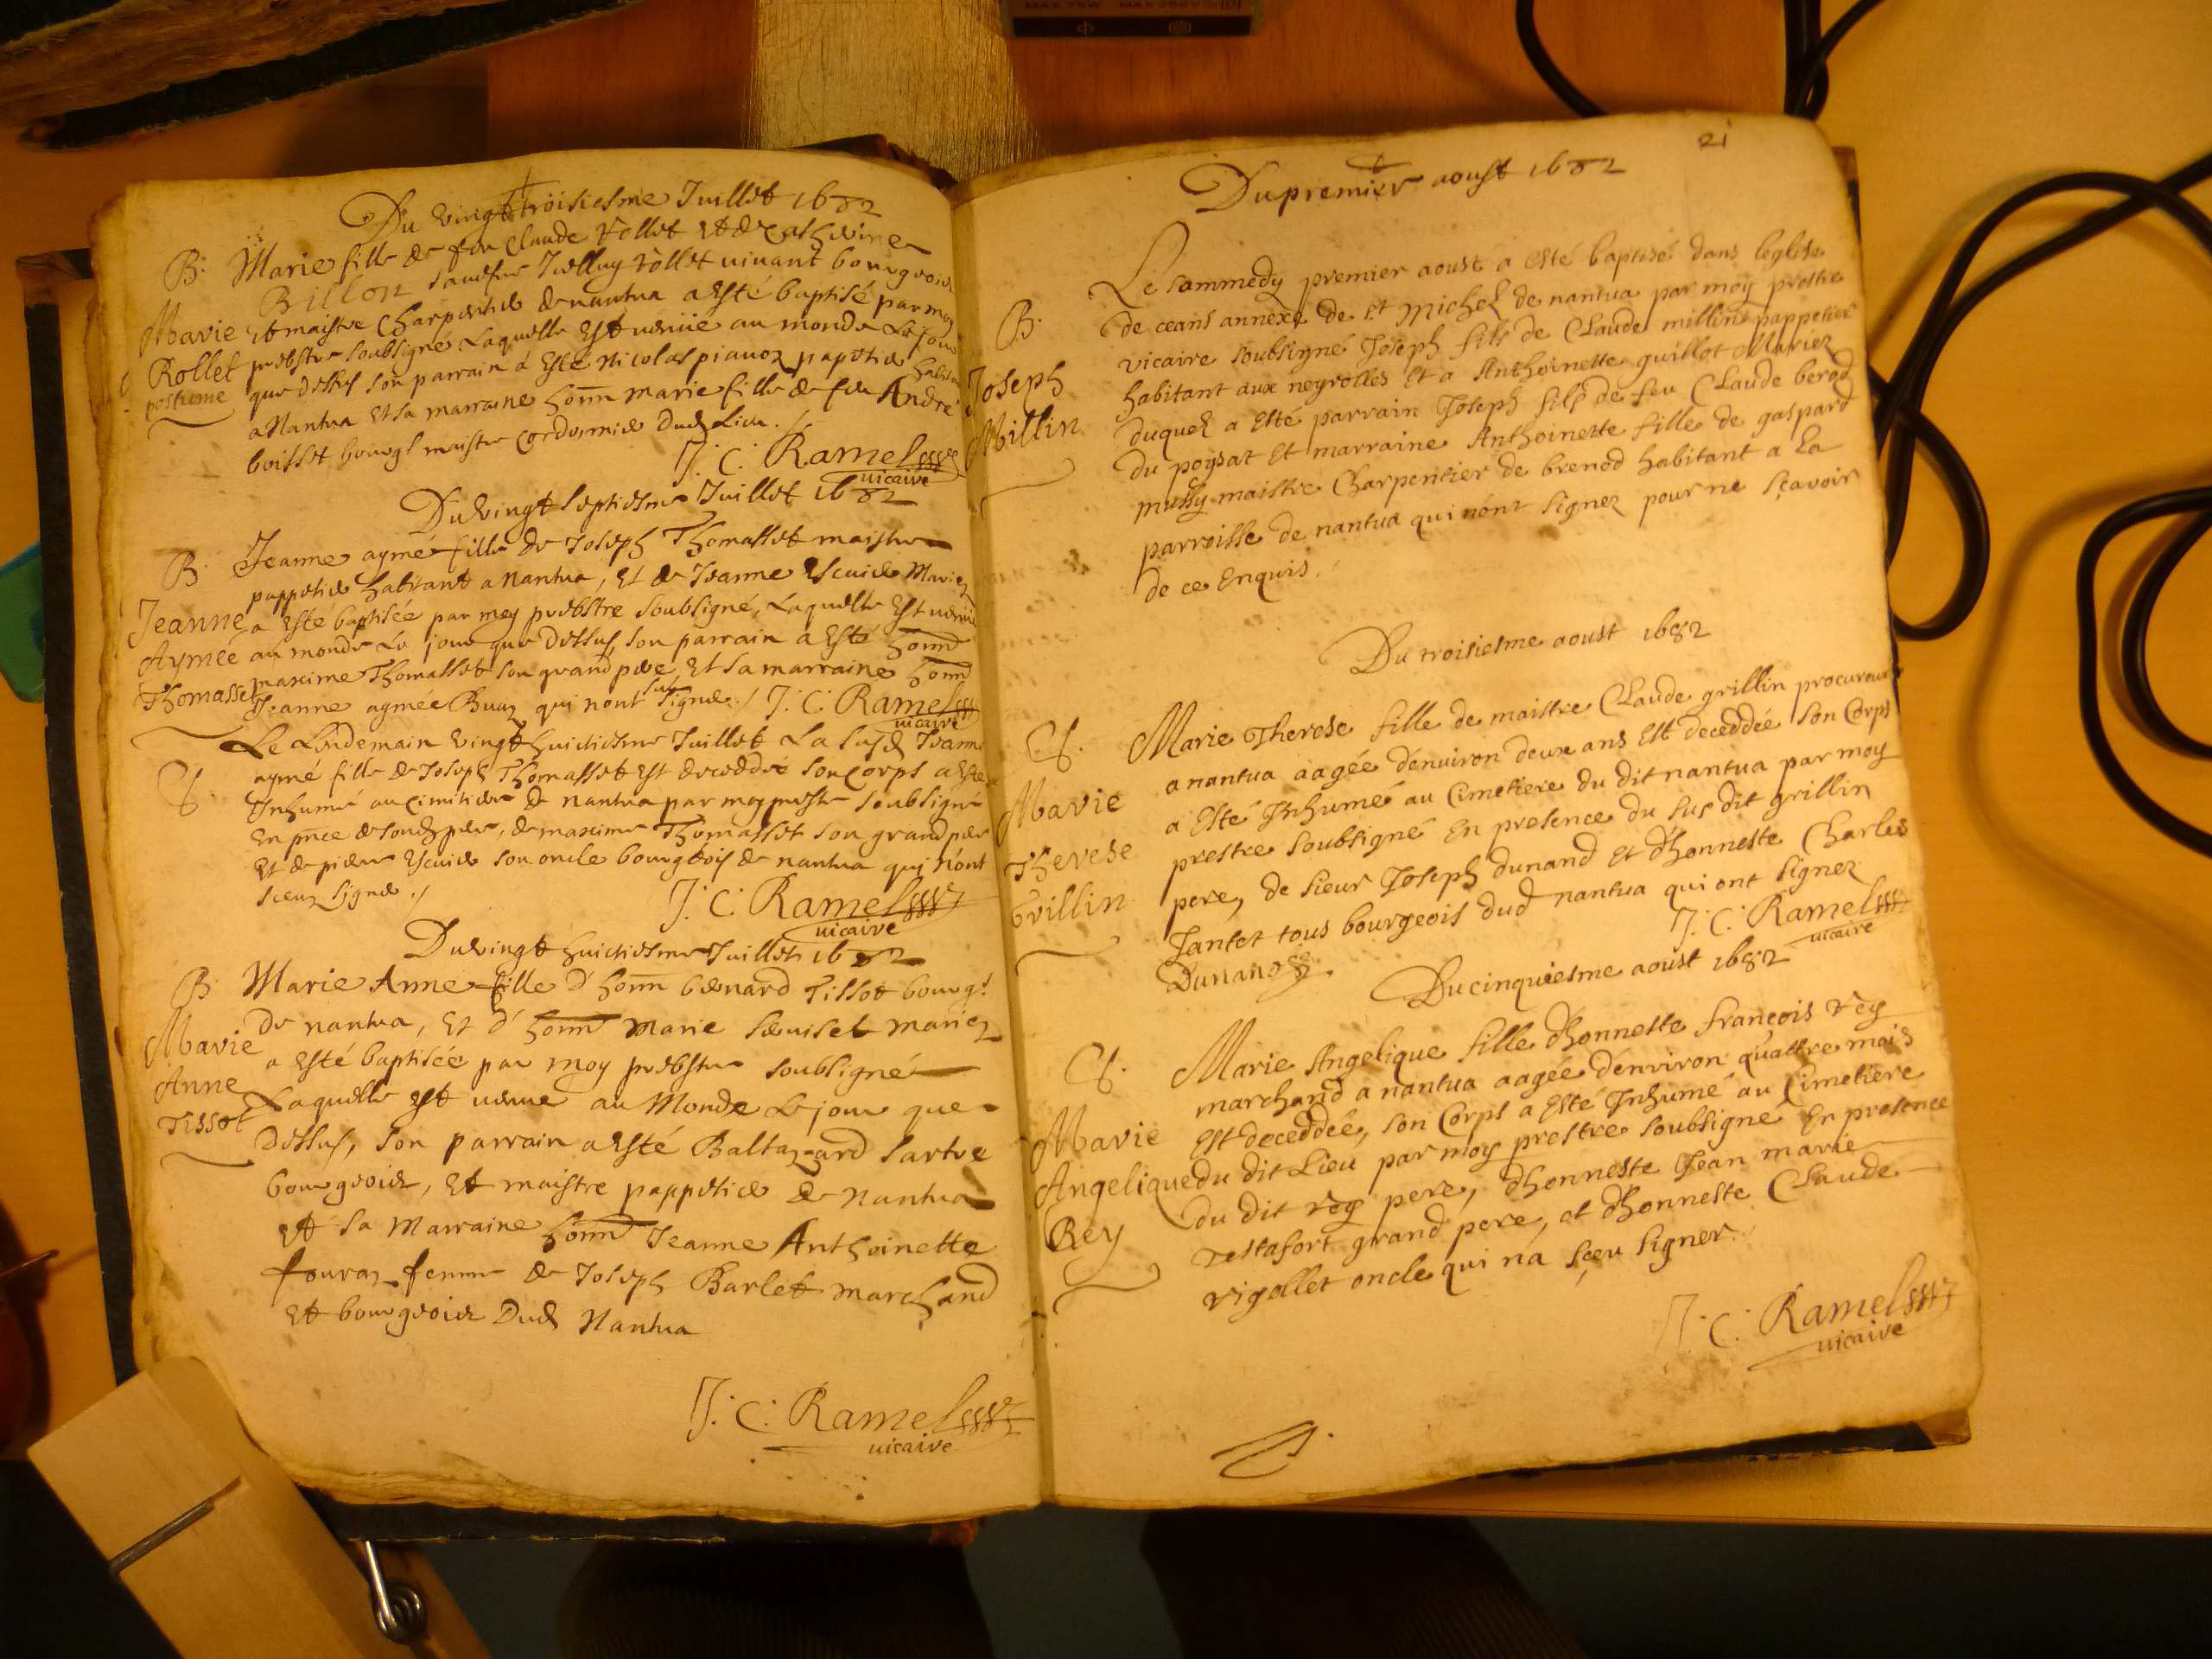 Du vingt troisiesme Juillet 1682
B. Marie fille de feu Claude rollet et de Catherine
Billon sa vefve rollet vivant bourgeois
Marie et maistre Charpentier de nantua a esté baptisé par moy
Rollet prebstre soubsigné Laquelle Est venüe au monde Le Jour
postume que dessus son parrain à Esté Nicolas pianoz papetier habitant
a Nantua Et sa marraine honn marie fille de feu André
boisset bourgs maistre Cordonnier dud Lieu./
J. C. Ramel
vicaire
Du vingt septiesme Juillet 1682
B. Jeanne aymé fille de Joseph Thomasset maistre
pappetier habitant a Nantua, Et de Jeanne Escuier Mariez
Jeanne a Esté baptisée par moy prebstre soubsigné, Laquelle Est venüe
Aymée au monde Le jour que dessus, son parrain a Esté honn
Thomasset maxime Thomasset son grand pere, Et sa marraine honn
Jeanne aymée Buaz qui nont sçu signer./ J. C. Ramel
vicaire
Le Lendemain vingt huictiesme Juillet La susd Jeanne
aymé fille de Joseph Thomasset Est deceddée son Corps a Esté
Inhumé au Cimitiere de nantua par moy prestre soubsigné
En pnce de soud pere, de maxime Thomasset son grand pere
Et de pierre Escuier son oncle bourgeois de nantua qui n'ont
sceu signer./
J. C. Ramel
vicaire
Du vingt huictiesme Juillet 1682
B. Marie Anne fille d'honn bernard Tissot bourgs
Marie de nantua, Et d'honn marie mariez
a Esté baptisée par moy prebstre soubsigné
Anne Laquelle est venue au Monde Le jour que
Tissot dessus, son parrain a Esté Baltazard sartre
bourgeois, Et maistre pappetier de Nantua
Et sa Marraine honn Jeanne Anthoinette
fouraz femme de Joseph Barlet marchand
Et bourgeois Dud Nantua
J. C. Ramel
vicaire
21
Du premier aoust 1682
Le sammedy premier aoust a esté baptisé dans leglise
B. de ceans annexe de St Michel de nantua par moy prestre
vicaire soubsigné Joseph fils de Claude millin pappetier
Joseph habitant aux neyrolles et a Anthoinette guillot Mariez
Millin duquel a Esté parrain Joseph fils de feu Claude berod
du poysat Et marraine Anthoinette fille de gaspard
mussy maistre Charpentier de brenod habitant a La
parroisse de nantua qui nónt signez pour ne sçavoir
de ce Enquis.
Du troisiesme aoust 1682
Marie Therese fille de maistre Claude grillin procureur
a nantua aagée denuiron deux ans Est deceddée son Corps
Marie a Esté Inhumé au Cimetiere du dit nantua par moy
Therese prestre soubsigné En presence du sus dit grillin
Grillin pere, de sieur Joseph dunand et d'honneste Charles
Jantet tous bourgeois dud nantua qui ont signez
Dunand J. C. Ramel
vicaire
Du cinquiesme aoust 1682
Marie Angelique fille d'honneste françois rey
marchand a nantua aagée d'environ quattre mois
Marie Est deceddée, son Corps a Esté Inhumé au Cimetiere
Angelique du dit Lieu par moy prestre soubsigne En presence
du dit rey pere, d'honneste Jean marie
Rey restafort grand pere, et d'honneste Claude
vigollet oncle qui n'a sçeu signer.
J. C. Ramel
vicaire